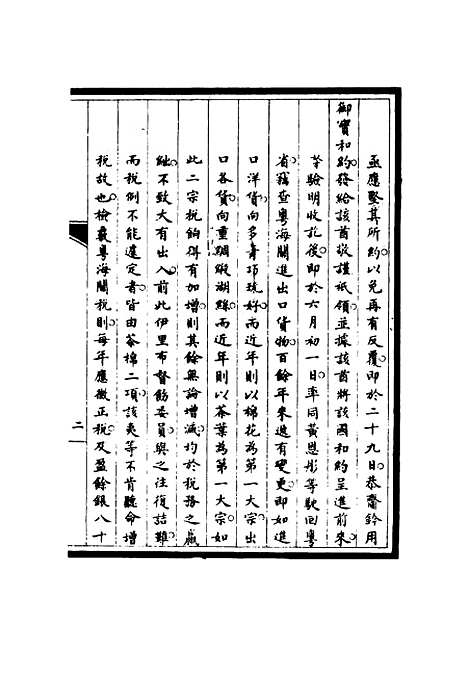 亟應堅其所約以免再有反覆即於二十九日恭齎鈐用
御寶和約發給該酋敬謹祇領並據該酋將該國和約呈進前來
等驗明收訖後即於六月初一日率同黃恩彤等馳回粵
省竊查粵海關進出口貨物百餘年來遞有變更即如進
口洋貨向多青項琉好而近年則以棉花為第一大宗出
口各貨向重綢緞湖絲而近年則以茶葉為第一大宗如
此二宗稅餉得有加增則其餘無論增減均於稅務之贏
絀不致大有出入前此伊里布督飭委員與之往復詰難
而稅例不能遽定者皆由茶棉二項該夷等不肯聽命增
稅故也檢覈粵海關稅則每年應徵正稅及盈餘銀八十
二